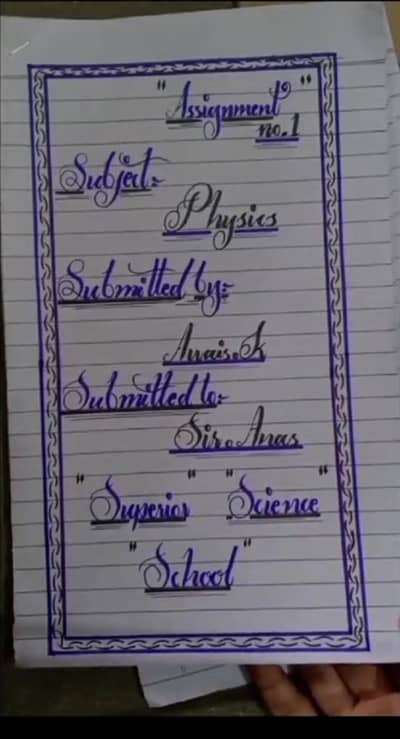 "Assignment"
no.1
Subject:-
Physics
Submitted by:-
Awais.K
Submitted to:-
Sir.Anas
"Superior" "Science"
"School"